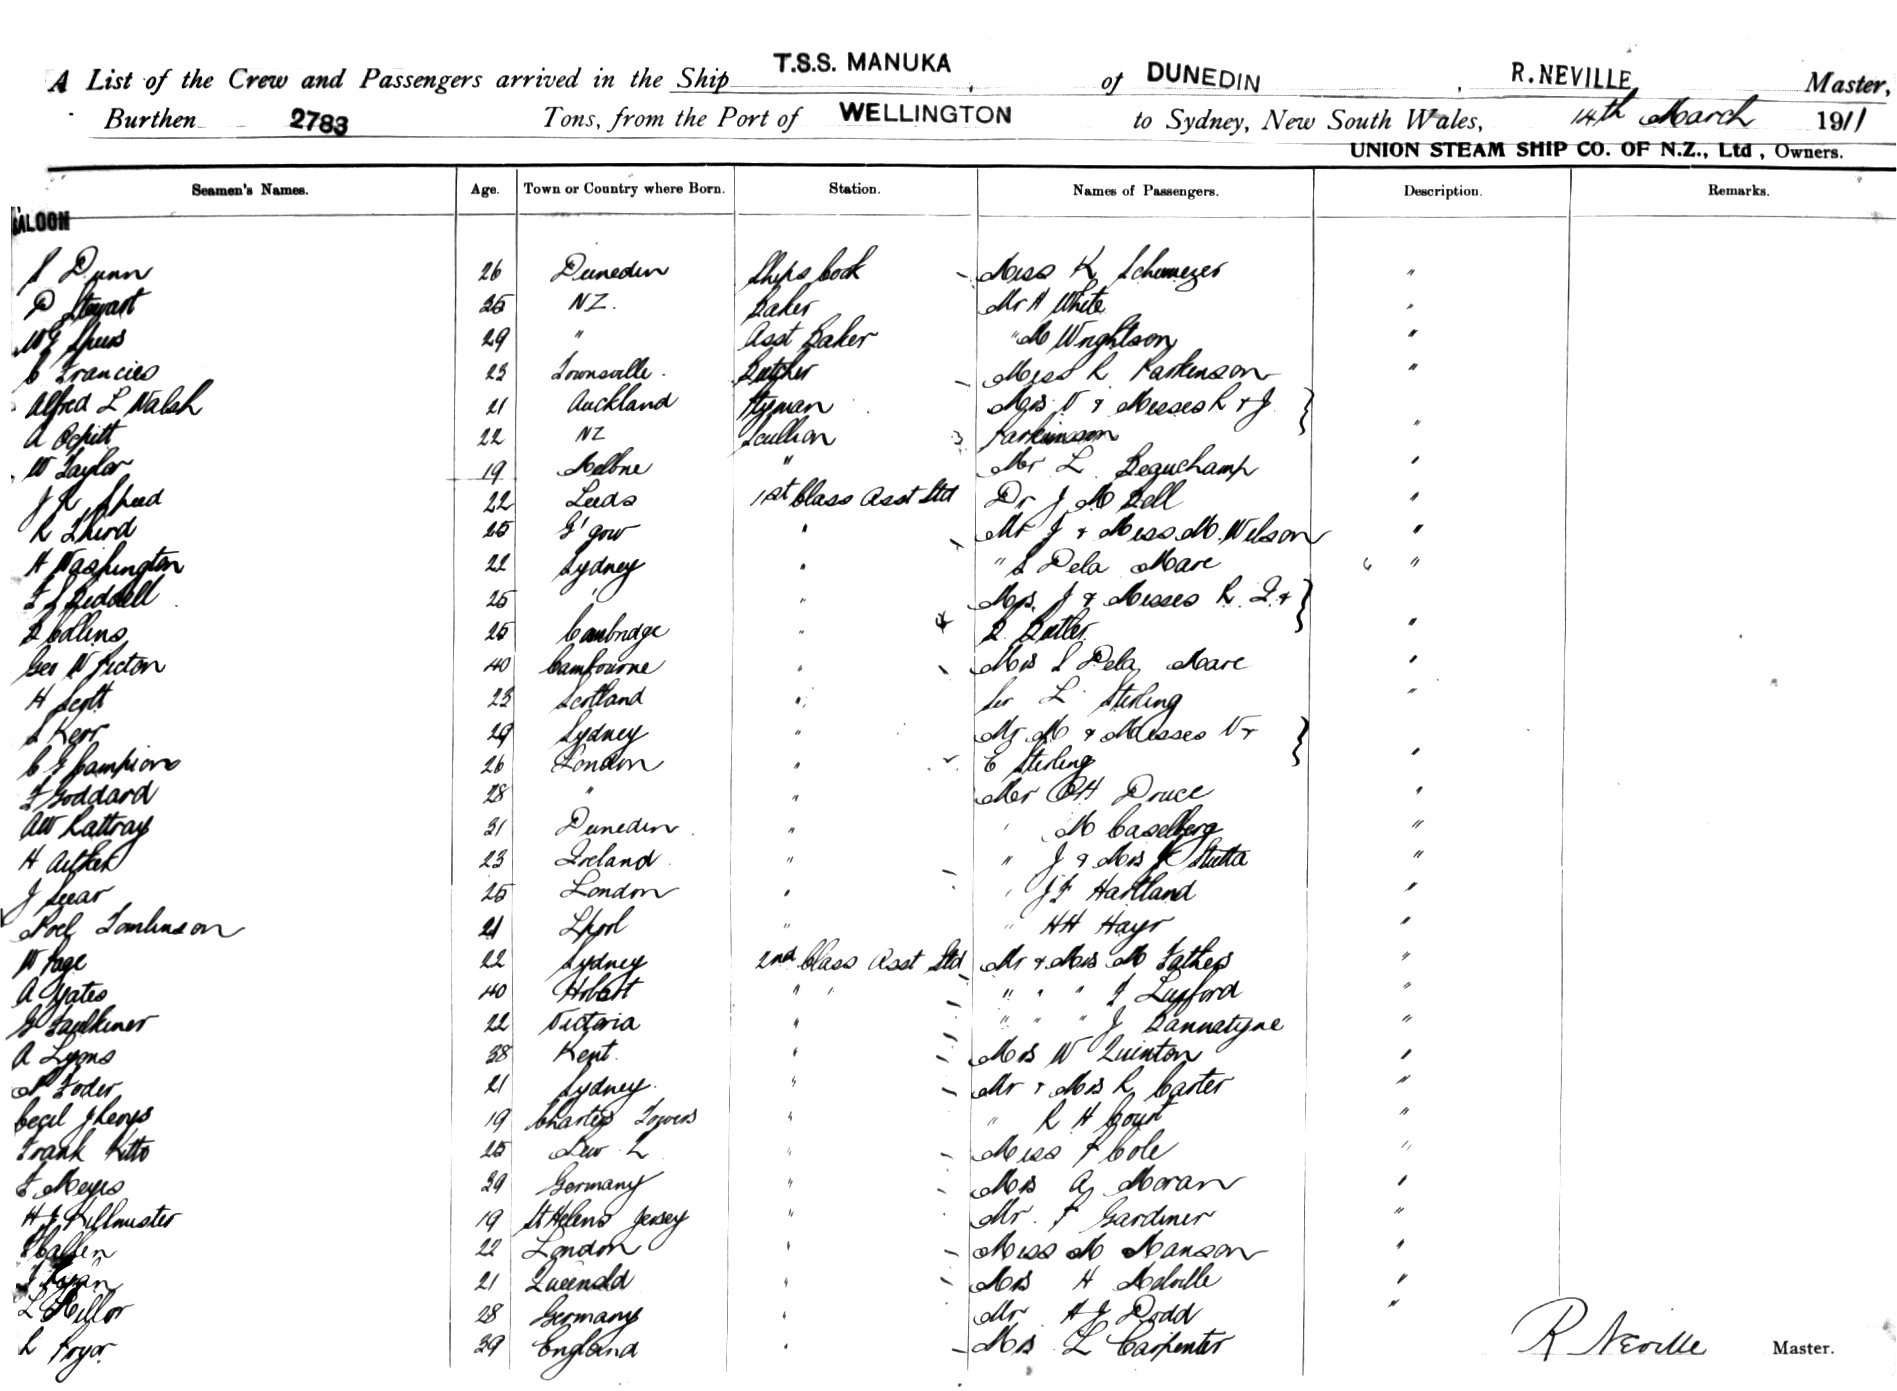 A List of the Crew and Passengers arrived in the Ship T.S.S. MANUKA, of DUNEDIN, R. NEVILLE, Master,
Burthen 2783 Tons, from the Port of WELLINGTON to Sydney, New South Wales, 14th March 1911
UNION STEAM SHIP CO. OF N.Z., Ltd, Owners.
Seamen's Names. Age. Town or Country where Born. Station. Names of Passengers. Description. Remarks.
SALOON
S Dunn 26 Dunedin Ships Cook Miss K "
D Stewart 25 NZ. Baker Mr A White "
29 " Asst Baker " M Wrightson "
C Francies 23 Townsville. Butcher Miss R Parkinson "
Alfred L Walsh 21 Auckland Mrs V & Misses R & J }
A 22 NZ Scullion 3 Parkinson "
W Taylor 19 Melbne " Mr L. Beauchamp "
J R Speed 22 Leeds 1st Class Asst Std Dr J M Bell "
R Third 25 G'gow " Mr J & Miss M. Wilson "
H Washington 22 Sydney " " S Dela Mare "
25 " " Mrs. J & Misses R. I. & }
B Collins 25 Cambridge " 4 B. Butler "
Geo W Picton 40 Cambourne " Mrs S Dela Mare "
H Scott 23 Scotland " L Stirling "
S Kerr 29 Sydney " Mr M & Misses V & }
C G Campion 26 London " E Stirling "
F Goddard 28 " " Mr OH Druce "
AW Rattray 31 Dunedin " " M Caselberg "
H Aitken 23 Ireland " " J & Mrs "
J Sear 25 London " " J F Hartland "
Noel Tomlinson 21 L'pool " " HH Hayr "
W Page 22 Sydney 2nd Class Asst Std Mr & Mrs M Fathers "
A Yates 40 Hobart " " " " " F Luxford "
G Faulkner 22 Victoria " " " " J Bannatyne "
A Lyons 38 Kent. " Mrs W Quinton "
21 Sydney. " Mr & Mrs R Carter "
Cecil J 19 Charters Towers " " R H Court "
Frank Kitto 25 " Miss F Cole "
F Meyes 29 Germany " Mrs A Moran "
H J Killmister 19 St Heliers Jersey " Mr. F Gardiner "
22 London " Miss M Manson "
J Ryan 21 Queensld " Mrs H Melville "
L 28 Germany " Mr A J Dodd "
R Pryor 39 England " Mrs L Carpenter
R Neville Master.